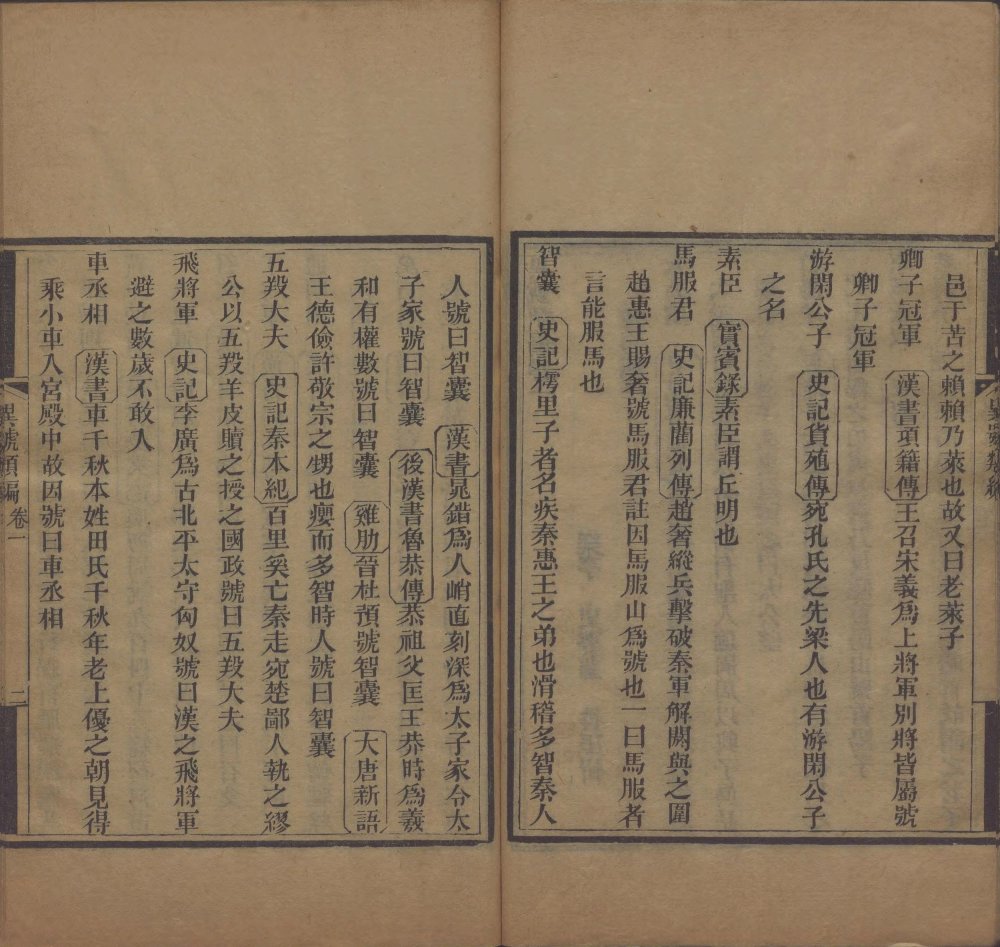 邑于苦之賴賴乃萊也故又曰老萊子
卿子冠軍　漢書項籍傳王召宋義爲上將軍別將皆屬號
卿子冠軍
游閑公子　史記貨殖傳宛孔氏之先梁人也有游閑公子
之名
素臣　實賓錄素臣謂丘明也
馬服君　史記廉藺列傳趙奢縱兵擊破秦軍解閼與之圍
趙惠王賜奢號馬服君註因馬服山爲號也一曰馬服者
言能服馬也
智囊　史記樗里子者名疾秦惠王之弟也滑稽多智秦人
人號曰智囊　漢書晁錯爲人峭直刻深爲太子家令太
子家號曰智囊　後漢書魯恭傳恭祖父匡王莽時爲羲
和有權數號曰智囊　雞肋晉杜預號智囊　大唐新語
王德儉許敬宗之甥也癭而多智時人號曰智囊
五羖大夫　史記秦本紀百里奚亡秦走宛楚鄙人執之繆
公以五羖羊皮贖之授之國政號曰五羖大夫
飛將軍　史記李廣爲古北平太守匈奴號曰漢之飛將軍
避之數歲不敢入
車丞相　漢書車千秋本姓田氏千秋年老上優之朝見得
乘小車入宮殿中故因號曰車丞相
異號類編　卷一　二